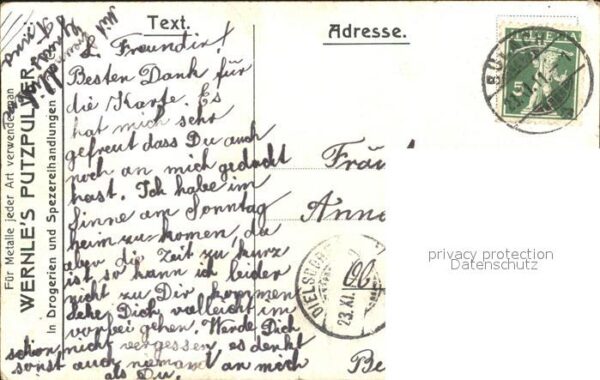 Text.
Adresse.
Für Metalle jeder Art verwende man
WERNLE'S PUTZPULVER
In Drogerien und Spezereihandlungen
L. Freundin!
Besten Dank für
die Karte. Es
hat mich sehr
gefreut dass Du auch
noch an mich gedacht
hast. Ich habe im
Sinne am Sonntag
heim zu komen, da
aber die Zeit zu kurz
ist so kann ich leider
nicht zu Dir kommen
sehe Dich vielleicht im
vorbei gehen. Werde Dich
schon nicht vergessen, es denkt
sonst auch niemand an mich
als Du.
Fräu
Anna
Ob
Be
HELVETIA
5
DIELSDORF
23.XI.
privacy protection
Datenschutz